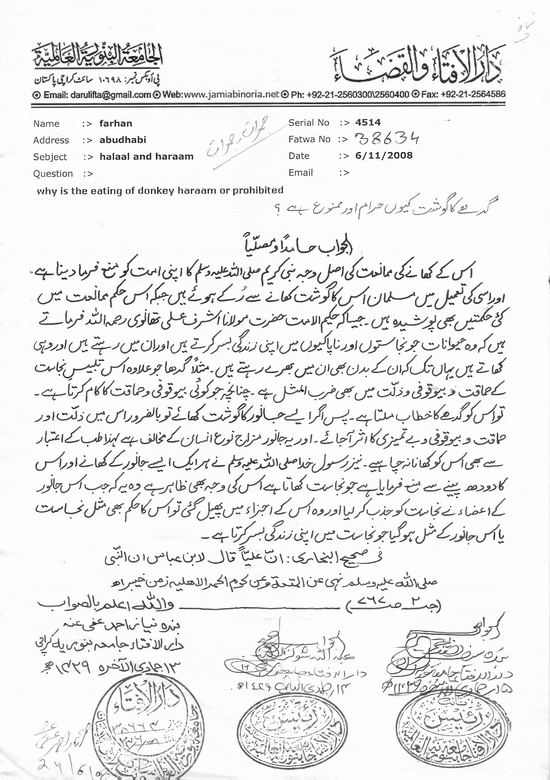 دار الافتاء والقضاء
الجامعة البنورية العالمية
پی او بکس نمبر: ۱۰۶۹۸ سائٹ کراچی پاکستان
Email: darulifta@gmail.com Web: www.jamiabinoria.net Ph: +92-21-2560300\2560400 Fax: +92-21-2564586
Name :> farhan Serial No :> 4514
Address :> abudhabi Fatwa No :> 38634
Subject :> halaal and haraam Date :> 6/11/2008
Question :> Email :>
why is the eating of donkey haraam or prohibited
گدھے کا گوشت کیوں حرام اور ممنوع ہے ؟
الجواب حامداً ومصلّیاً
اس کے کھانے کی ممانعت کی اصل وجہ نبی کریم صلی اللہ علیہ وسلم کا اپنی امت کو منع فرما دینا ہے۔
اور اسی کی تعمیل میں مسلمان اس کا گوشت کھانے سے رُکے ہوئے ہیں جبکہ اس حکم ممانعت میں
کئی حکمتیں بھی پوشیدہ ہیں۔ جیسا کہ حکیم الامت حضرت مولانا اشرف علی تھانوی رحمہ اللہ فرماتے
ہیں کہ وہ حیوانات جو نجاستوں اور ناپاکیوں میں اپنی زندگی بسر کرتے ہیں اور ان میں رہتے ہیں اور وہی
کھاتے ہیں یہاں تک کہ ان کے بدن بھی ان میں بھرے رہتے ہیں۔ مثلاً گدھا جو علاوہ اس تلبیسِ نجاست
کے حماقت و بیوقوفی و ذلّت میں بھی ضرب المثل ہے۔ چنانچہ جو کوئی بیوقوفی و حماقت کا کام کرتا ہے۔
تو اس کو گدھے کا خطاب ملتا ہے۔ پس اگر ایسے جانور کا گوشت کھائے تو بالضرور اس میں ذلّت اور
حماقت و بیوقوفی و بے تمیزی کا اثر آجائے۔ اور یہ جانور مزاج نوع انسان کے مخالف ہے لہذا طب کے اعتبار
سے بھی اس کو کھانا نہ چاہیے۔ نیز رسول خدا صلی اللہ علیہ وسلم نے ہر ایک ایسے جانور کے کھانے اور اس
کا دودھ پینے سے منع فرمایا ہے جو نجاست کھاتا ہے اس کی وجہ بھی ظاہر ہے وہ یہ کہ جب اس جانور
کے اعضاء نے نجاست کو جذب کر لیا اور وہ اس کے اجزاء میں پھیل گئی تو اس کا حکم بھی مثل نجاست
یا اس جانور کے مثل ہو گیا جو نجاست میں اپنی زندگی بسر کرتا ہے۔
فی صحیح البخاری: انّ علیّاً قال لابن عباس ان النّبی
صلی اللہ علیہ وسلم نہی عن المتعة وعن لحوم الحمر الاھلیة زمن خیبر اھ
(جـ ۲ صـ ۷۶۷) واللہ اعلم بالصواب
بندہ نیاز احمد عفی عنہ
دار الافتاء جامعہ بنوریہ کراچی
۱۳ جمادی الآخرہ ۱۴۲۹ھ
دار الافتاء
رئیس
رئیس